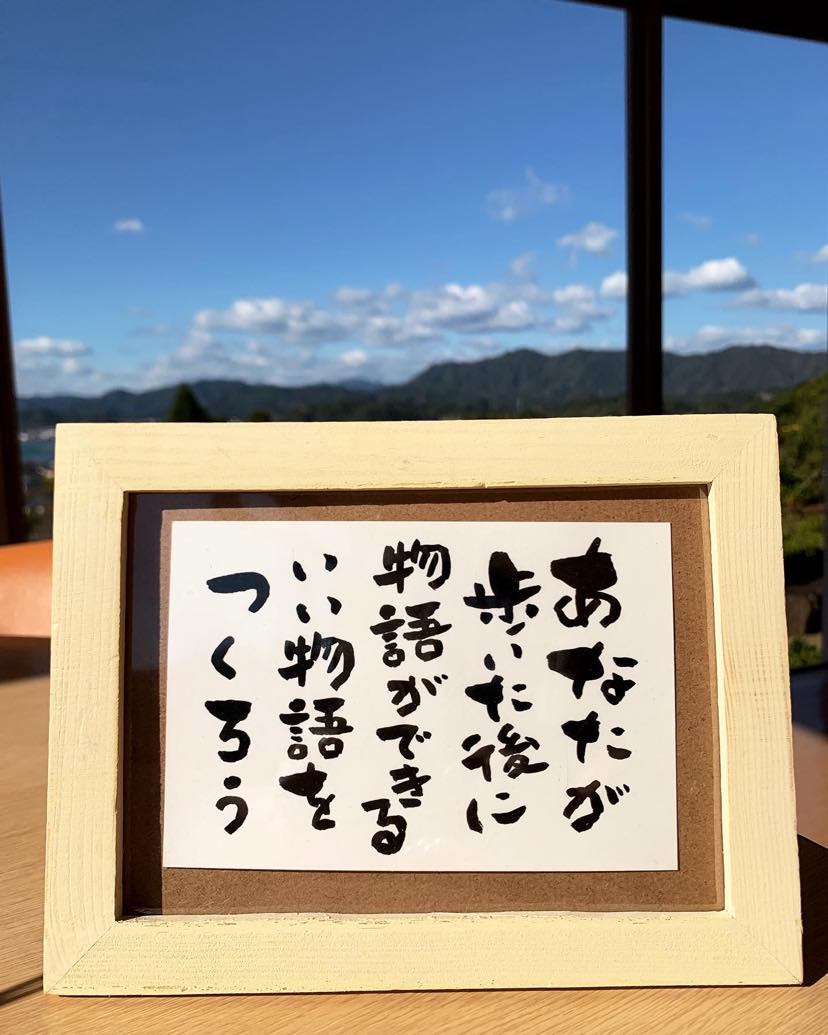 あなたが
歩いた後に
物語ができる
いい物語を
つくろう